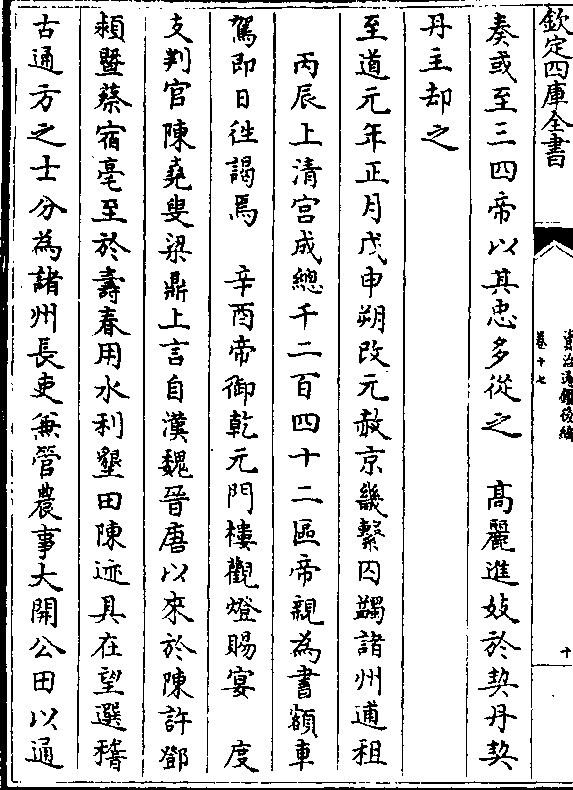 欽定四庫全書
資治通鑑後編
卷十七
十
奏或至三四帝以其忠多從之　高麗進妓於契丹契
丹主却之
至道元年正月戊申朔改元赦京畿繫囚蠲諸州逋租
丙辰上清宮成總千二百四十二區帝親為書額車
駕即日往謁焉　辛酉帝御乾元門樓觀燈賜宴　度
支判官陳堯叟梁鼎上言自漢魏晉唐以來於陳許鄧
潁暨蔡宿亳至於壽春用水利墾田陳迹具在望選稽
古通方之士分為諸州長吏兼管農事大開公田以通